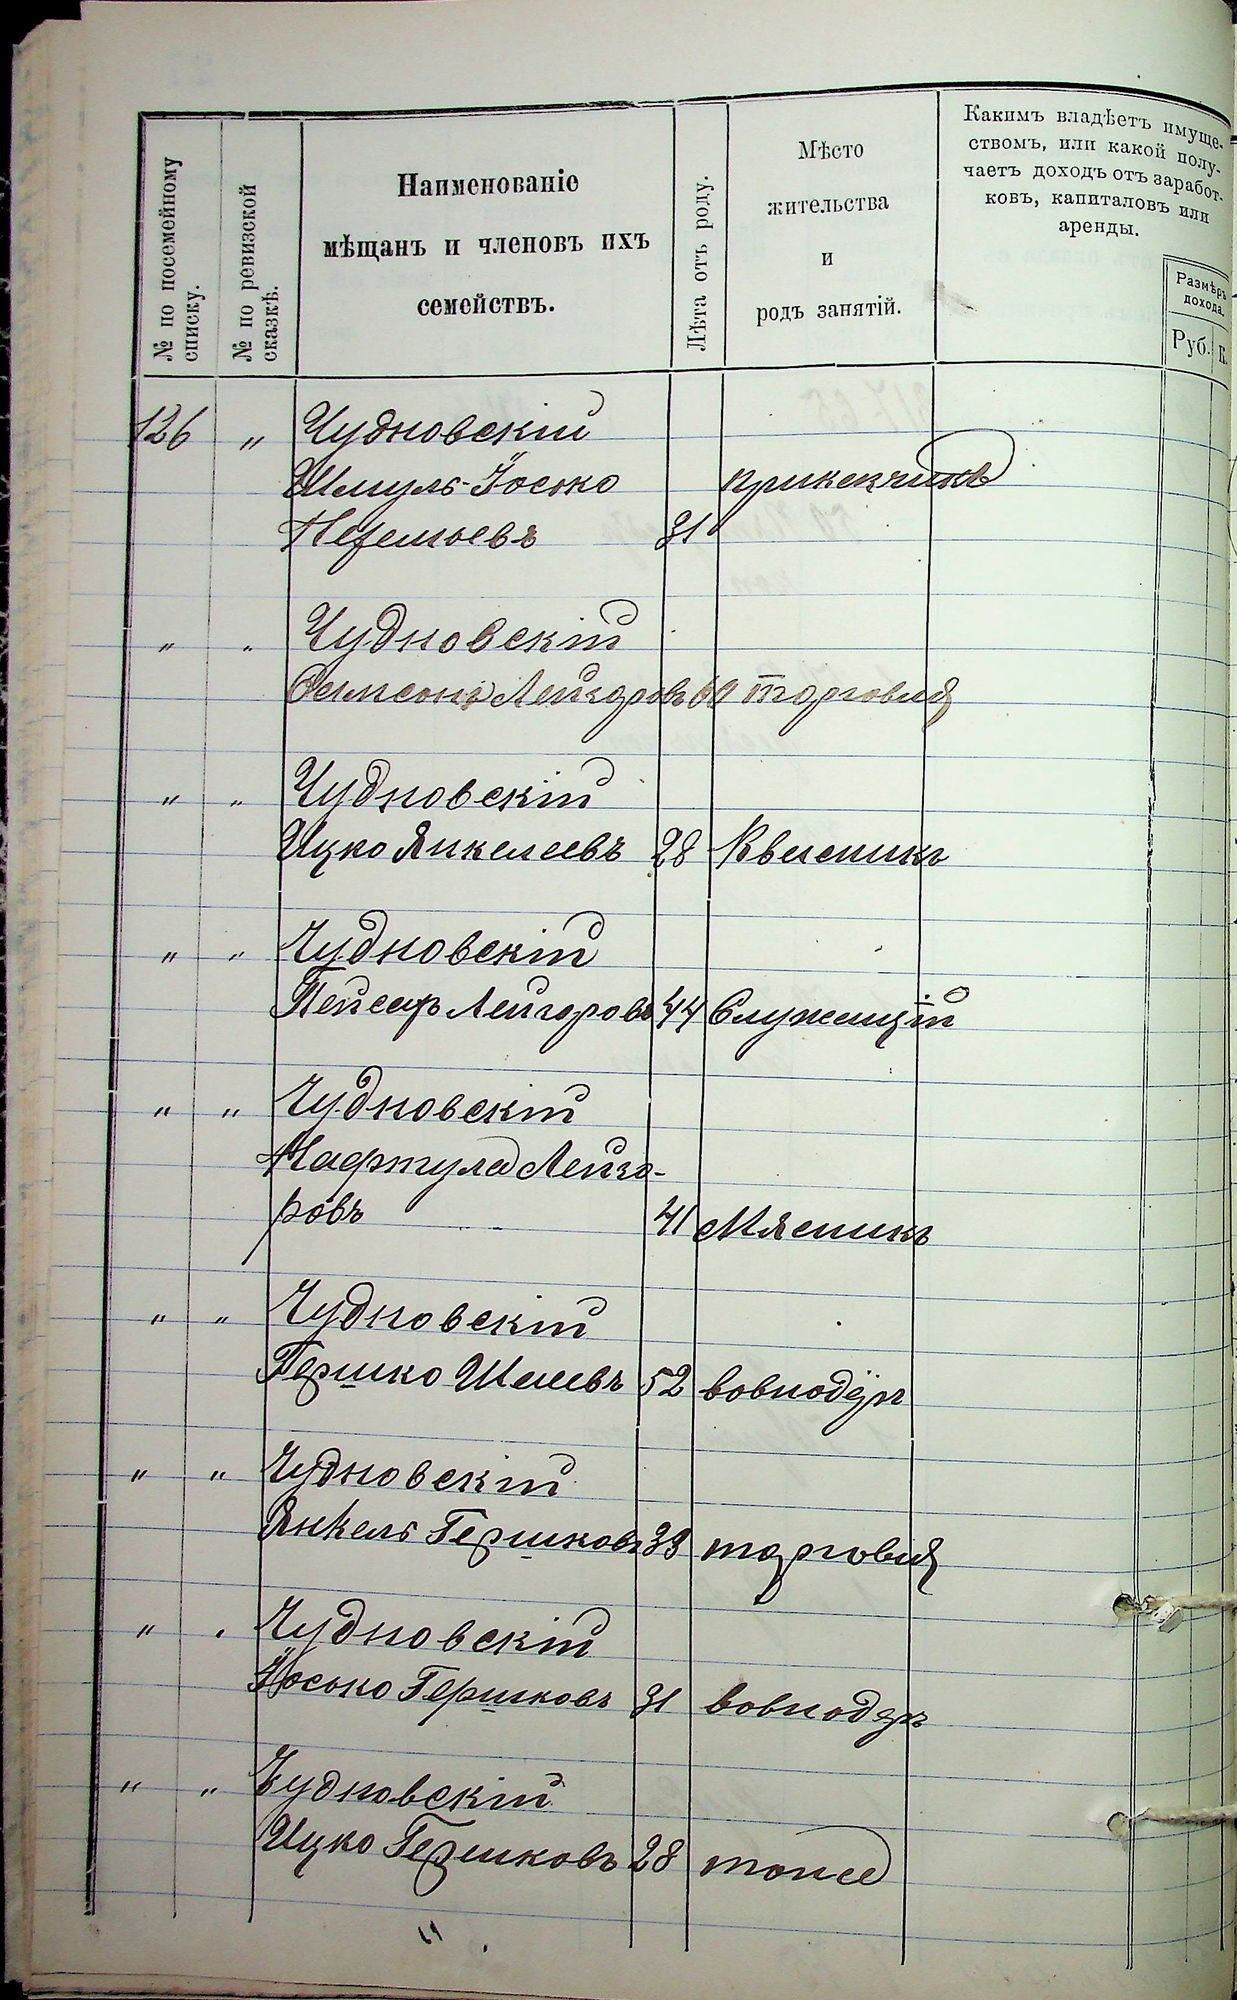 № по посемейному
списку.
№ по ревизской
сказкѣ.
Наименованіе
мѣщанъ и членовъ ихъ
семействъ.
Лѣта отъ роду.
Мѣсто
жительства
и
родъ занятій.
Какимъ владѣетъ имуще-
ствомъ, или какой полу-
чаетъ доходъ отъ заработ-
ковъ, капиталовъ или
аренды.
Размѣръ
дохода.
Руб. К.
126 " Чудновскій
Шмуль-Іосько
31
" " Чудновскій
Симсонъ Лейзоровъ 60 торговля
" " Чудновскій
Ицко Янкелевъ 28
" " Чудновскій
Пейсахъ Лейзоровъ 44 Служащій
" " Чудновскій
Нафтула Лейзо-
ровъ 41 Мясникъ
" " Чудновскій
Гершко 52 вовнодеръ
" " Чудновскій
Янкель Гершковъ 33 торговля
" " Чудновскій
Іосько Гершковъ 31 вовнодеръ
" " Чудновскій
Ицко Гершковъ 28 тоже